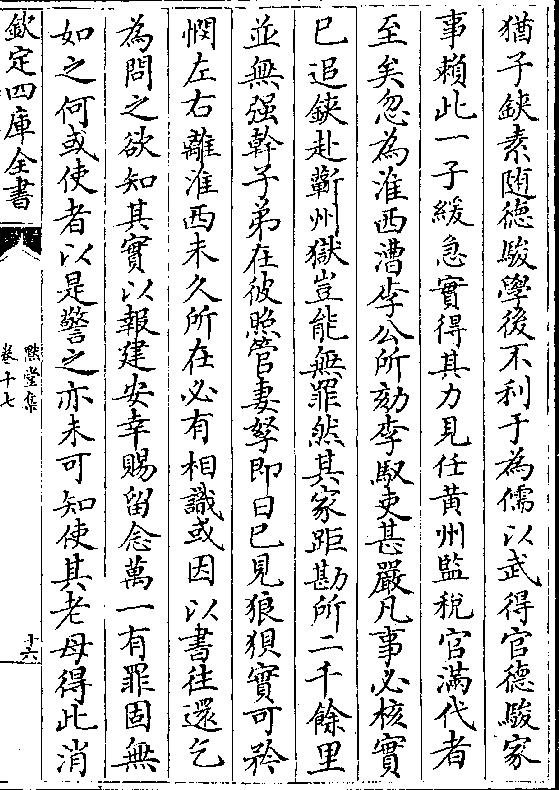 猶子鋏素随德駿學後不利于為儒以武得官德駿家
事頼此一子緩急實得其力見任黄州監稅官滿代者
至矣忽為淮西漕李公所劾李馭吏甚嚴凡事必核實
已追鋏赴蘄州獄豈能無罪然其家距勘所二千餘里
並無强幹子弟在彼照管妻孥即日已見狼狽實可矜
憫左右離淮西未久所在必有相識或因以書往還乞
為問之欲知其實以報建安幸賜留念萬一有罪固無
如之何或使者以是警之亦未可知使其老母得此消
欽定四庫全書
默堂集
卷十七
十六